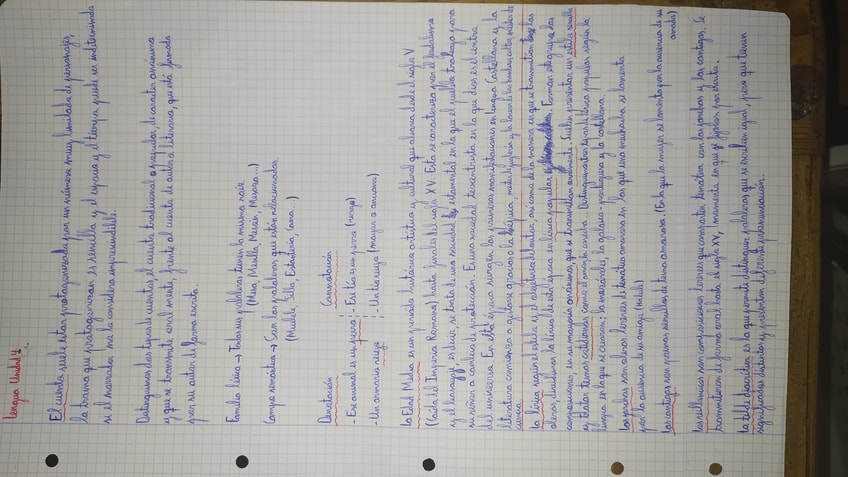 Lengua Unidad 4
El cuento suele estar protagonizado por un número muy limitado de personajes,
la trama que protagonizan es sencilla y el espacio y el tiempo puede ser indeterminado
si el narrador no lo considera imprescindible.
Distinguimos dos tipos de cuentos, el cuento tradicional o popular, de carácter anónimo
y que se transmite oralmente, frente al cuento de autor o literario, que está firmado
por su autor de forma escrita.
Familia léxica → Todas sus palabras tienen la misma raíz
(Mesa, Mesilla, Mesón, Mesera...)
Campo semántico → Son las palabras que están relacionadas.
(Mueble, Silla, Estantería, Cama...)
Denotación Connotación
- Ese animal es un perro - Ese tío es un perro (vago)
- Un armario viejo - Un tío viejo (mayor o anciano)
La Edad Media es un periodo histórico artístico y cultural que abarca desde el siglo V
(Caída del Imperio Romano) hasta finales del siglo XV. Esta se caracteriza por el feudalismo
y el es decir, se trata de una sociedad estamental en la que el pueblo trabaja para
su señor a cambio de protección. Es una sociedad teocentrista en la que dios es el centro
del universo. En esta época surgen las primeras manifestaciones en lengua Castellana y la
literatura comienza a
ciencia.
La lírica, según el estilo y el objetivo del autor, así como de la manera en que se transmitían las
obras dividimos la lírica de esta época en lírica popular. Forman este grupo las
composiciones, en su mayoría anónimas, que se transmitían oralmente. Suelen presentar un estilo sencillo
y tratar temas cotidianos como el amor, la cosecha. Distinguimos tipos de lírica popular según la
lengua en la que se crearon; la mozárabe, la galaico-portuguesa y la castellana.
Las jarchas son poemas breves de temática amorosa en los que una muchacha se lamenta
por la ausencia de su amigo (habibi)
Las cantigas son poemas sencillos de tema amoroso (En la que la mujer se lamenta por la ausencia de su
amado)
Los villancicos son composiciones breves que comparten temática con las jarchas y las cantigas. Se
transmitieron de forma oral hasta el siglo XV, momento en que se fijaron por escrito.
La tilde diacrítica es la que permite distinguir palabras que se escriben igual, pero que tienen
significados distintos y presentan diferente pronunciación.